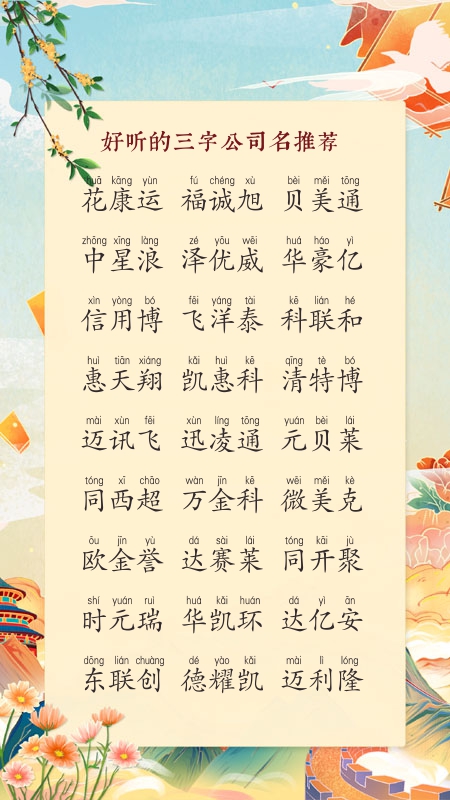 好听的三字公司名推荐
huā kāng yùn fú chéng xù bèi měi tōng
花康运 福诚旭 贝美通
zhōng xīng làng zé yōu wēi huá háo yì
中星浪 泽优威 华豪亿
xìn yòng bó fēi yáng tài kē lián hé
信用博 飞洋泰 科联和
huì tiān xiáng kǎi huì kē qīng tè bó
惠天翔 凯惠科 清特博
mài xùn fēi xùn líng tōng yuán bèi lái
迈讯飞 迅凌通 元贝莱
tóng xī chāo wàn jīn kē wēi měi kè
同西超 万金科 微美克
ōu jīn yù dá sài lái tóng kāi jù
欧金誉 达赛莱 同开聚
shí yuán ruì huá kǎi huán dá yì ān
时元瑞 华凯环 达亿安
dōng lián chuàng dé yào kǎi mài lì lóng
东联创 德耀凯 迈利隆